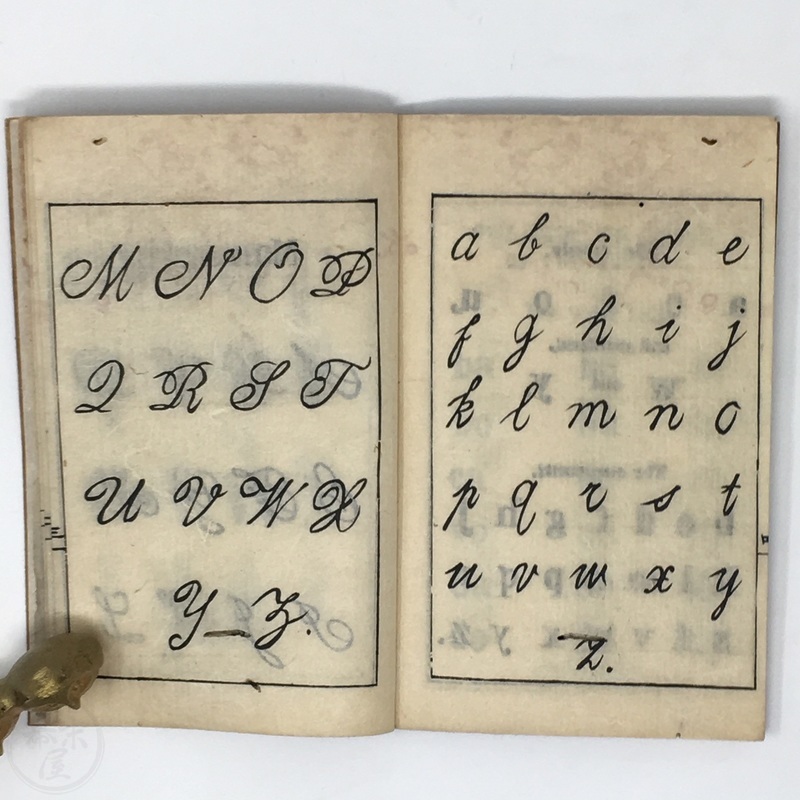 M N O P
Q R S T
U V W X
Y Z.
a b c d e
f g h i j
k l m n o
p q r s t
u v w x y
z.